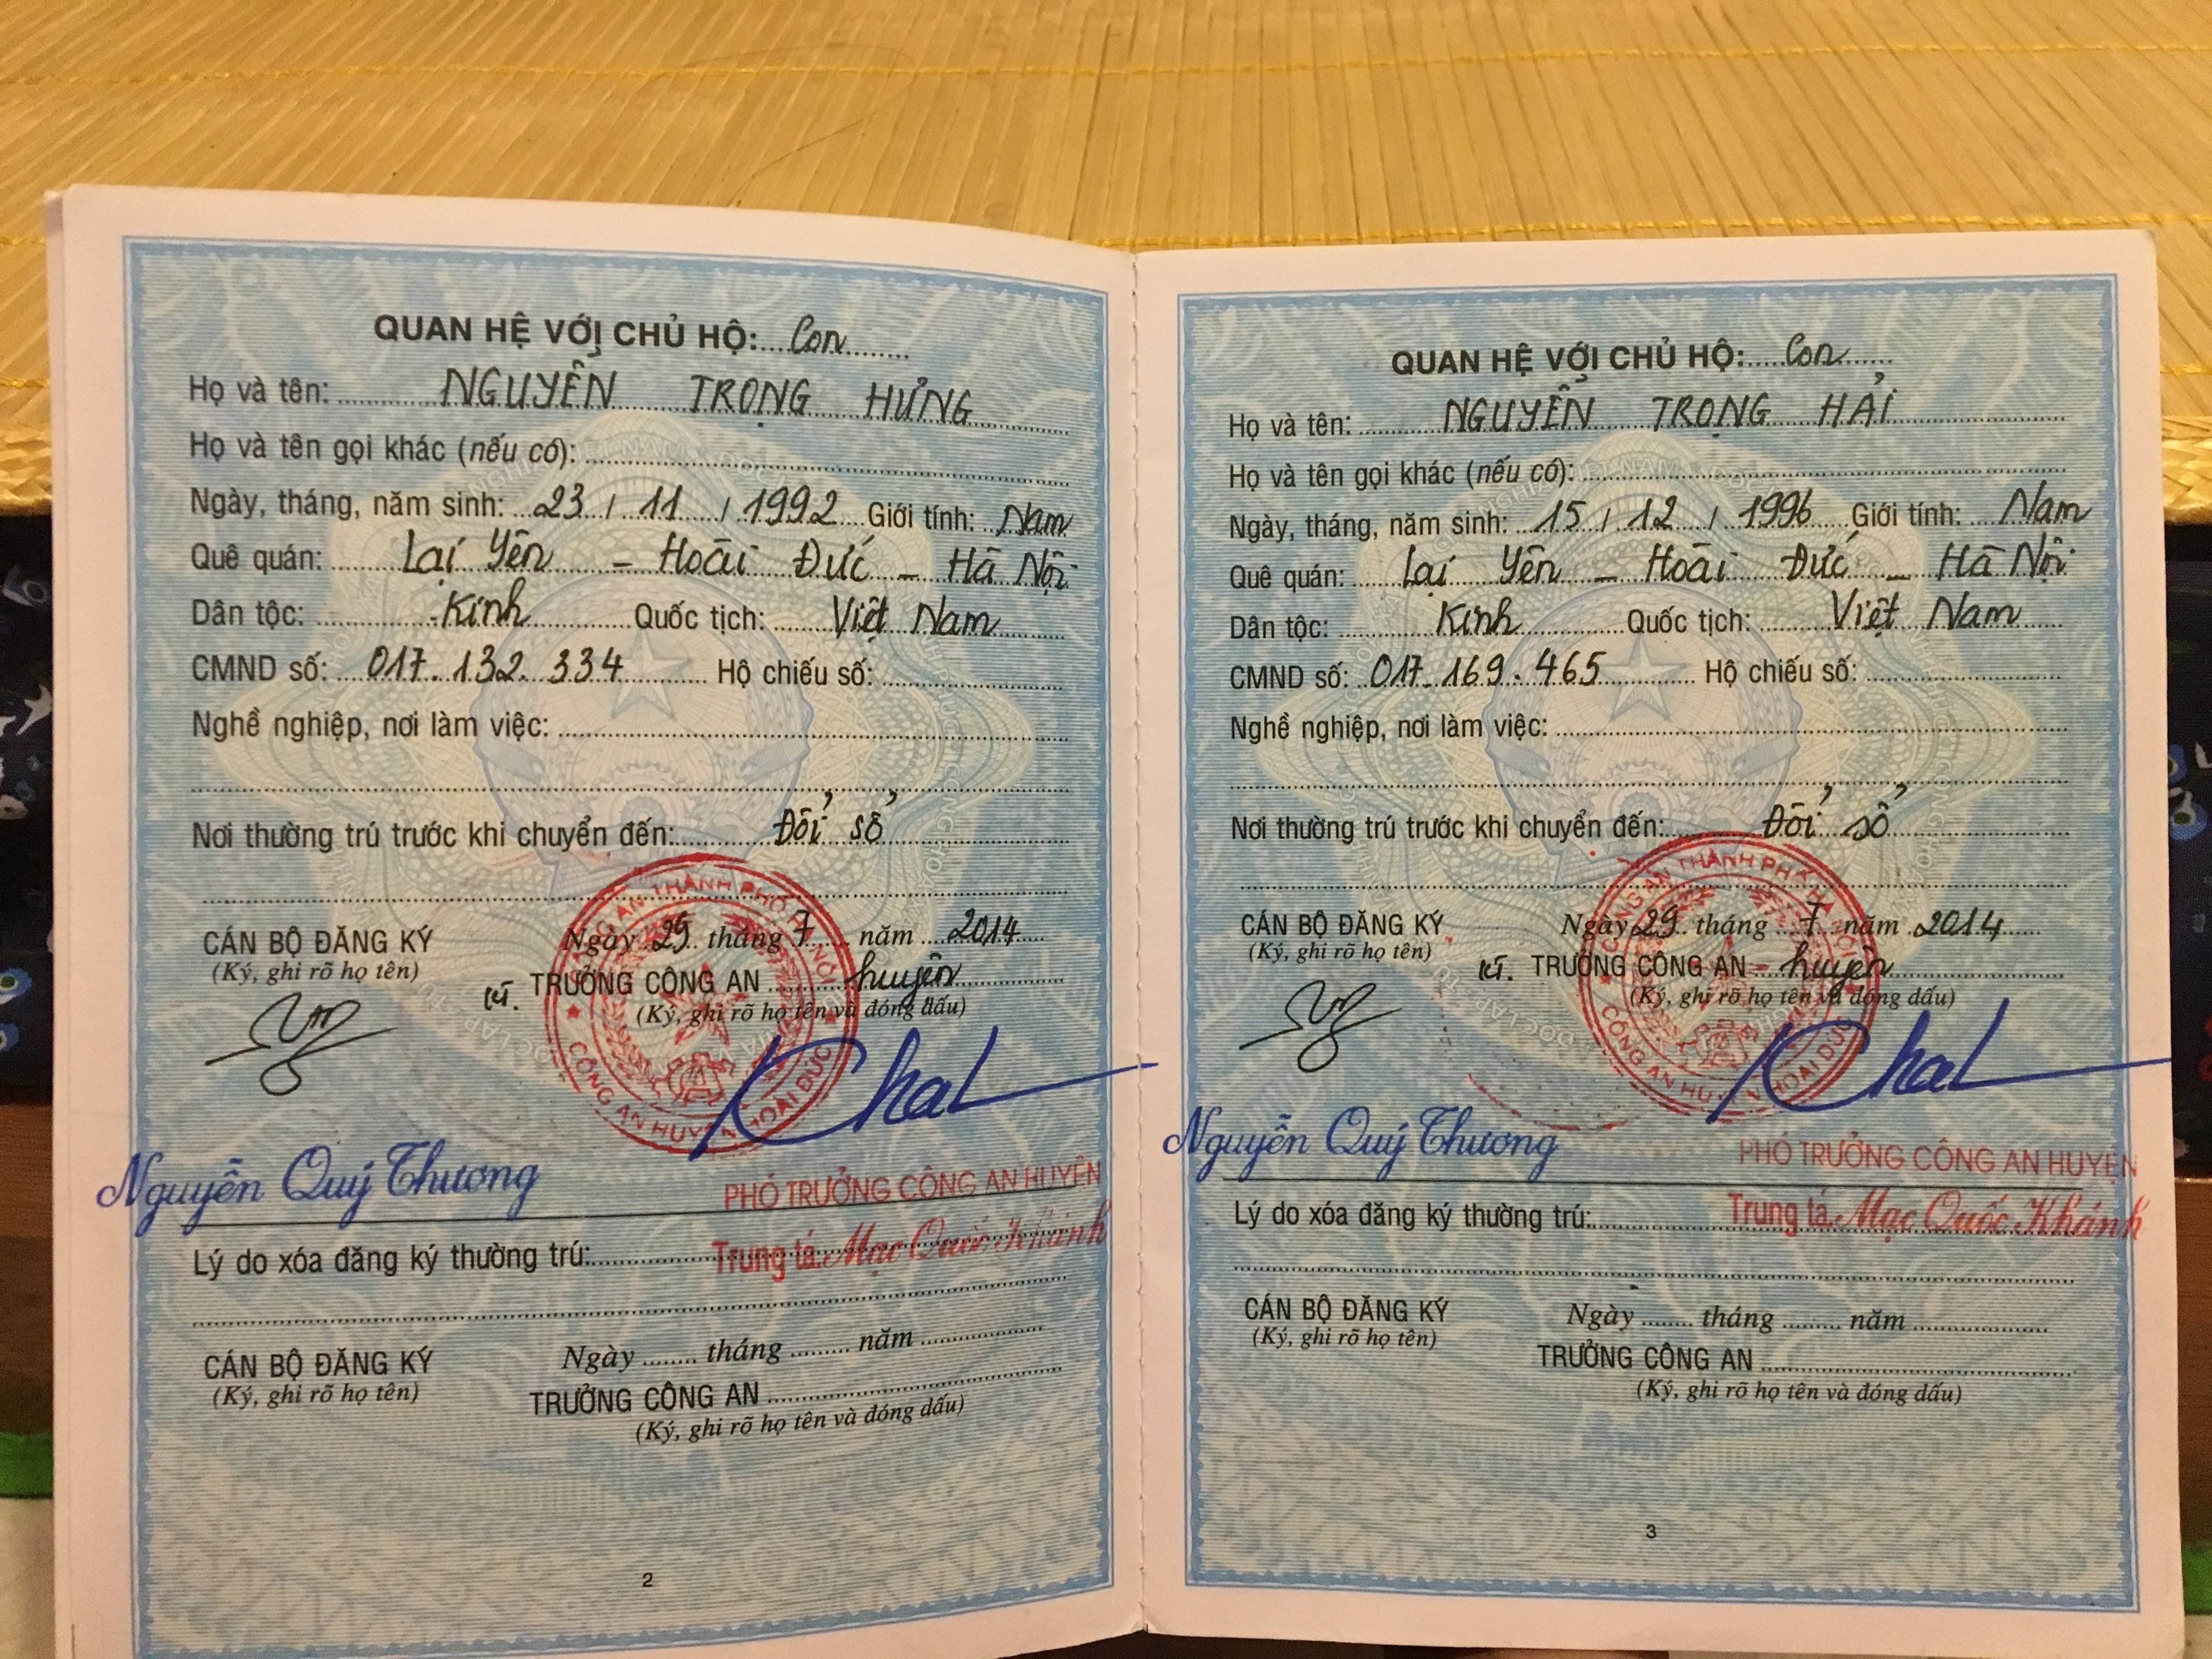 QUAN HỆ VỚI CHỦ HỘ: Con
Họ và tên: NGUYỄN TRỌNG HƯNG
Họ và tên gọi khác (nếu có):
Ngày, tháng, năm sinh: 23 / 11 / 1992 Giới tính: Nam
Quê quán: Lại Yên - Hoài Đức - Hà Nội
Dân tộc: Kinh Quốc tịch: Việt Nam
CMND số: 017.132.334 Hộ chiếu số:
Nghề nghiệp, nơi làm việc:
Nơi thường trú trước khi chuyển đến: Đổi sổ
CÁN BỘ ĐĂNG KÝ
(Ký, ghi rõ họ tên)
Ngày 29 tháng 7 năm 2014
KT. TRƯỞNG CÔNG AN huyện
(Ký, ghi rõ họ tên và đóng dấu)
CÔNG AN THÀNH PHỐ HÀ NỘI
CÔNG AN HUYỆN HOÀI ĐỨC
Nguyễn Quý Thương
PHÓ TRƯỞNG CÔNG AN HUYỆN
Trung tá Mạc Quốc Khánh
Lý do xóa đăng ký thường trú:
CÁN BỘ ĐĂNG KÝ
(Ký, ghi rõ họ tên)
Ngày ........ tháng ......... năm
TRƯỞNG CÔNG AN
(Ký, ghi rõ họ tên và đóng dấu)
2
QUAN HỆ VỚI CHỦ HỘ: Con
Họ và tên: NGUYỄN TRỌNG HẢI
Họ và tên gọi khác (nếu có):
Ngày, tháng, năm sinh: 15 / 12 / 1996 Giới tính: Nam
Quê quán: Lại Yên - Hoài Đức - Hà Nội
Dân tộc: Kinh Quốc tịch: Việt Nam
CMND số: 017.169.465 Hộ chiếu số:
Nghề nghiệp, nơi làm việc:
Nơi thường trú trước khi chuyển đến: Đổi sổ
CÁN BỘ ĐĂNG KÝ
(Ký, ghi rõ họ tên)
Ngày 29 tháng 7 năm 2014
KT. TRƯỞNG CÔNG AN huyện
(Ký, ghi rõ họ tên và đóng dấu)
CÔNG AN THÀNH PHỐ HÀ NỘI
CÔNG AN HUYỆN HOÀI ĐỨC
Nguyễn Quý Thương
PHÓ TRƯỞNG CÔNG AN HUYỆN
Trung tá Mạc Quốc Khánh
Lý do xóa đăng ký thường trú:
CÁN BỘ ĐĂNG KÝ
(Ký, ghi rõ họ tên)
Ngày ........ tháng ......... năm
TRƯỞNG CÔNG AN
(Ký, ghi rõ họ tên và đóng dấu)
3